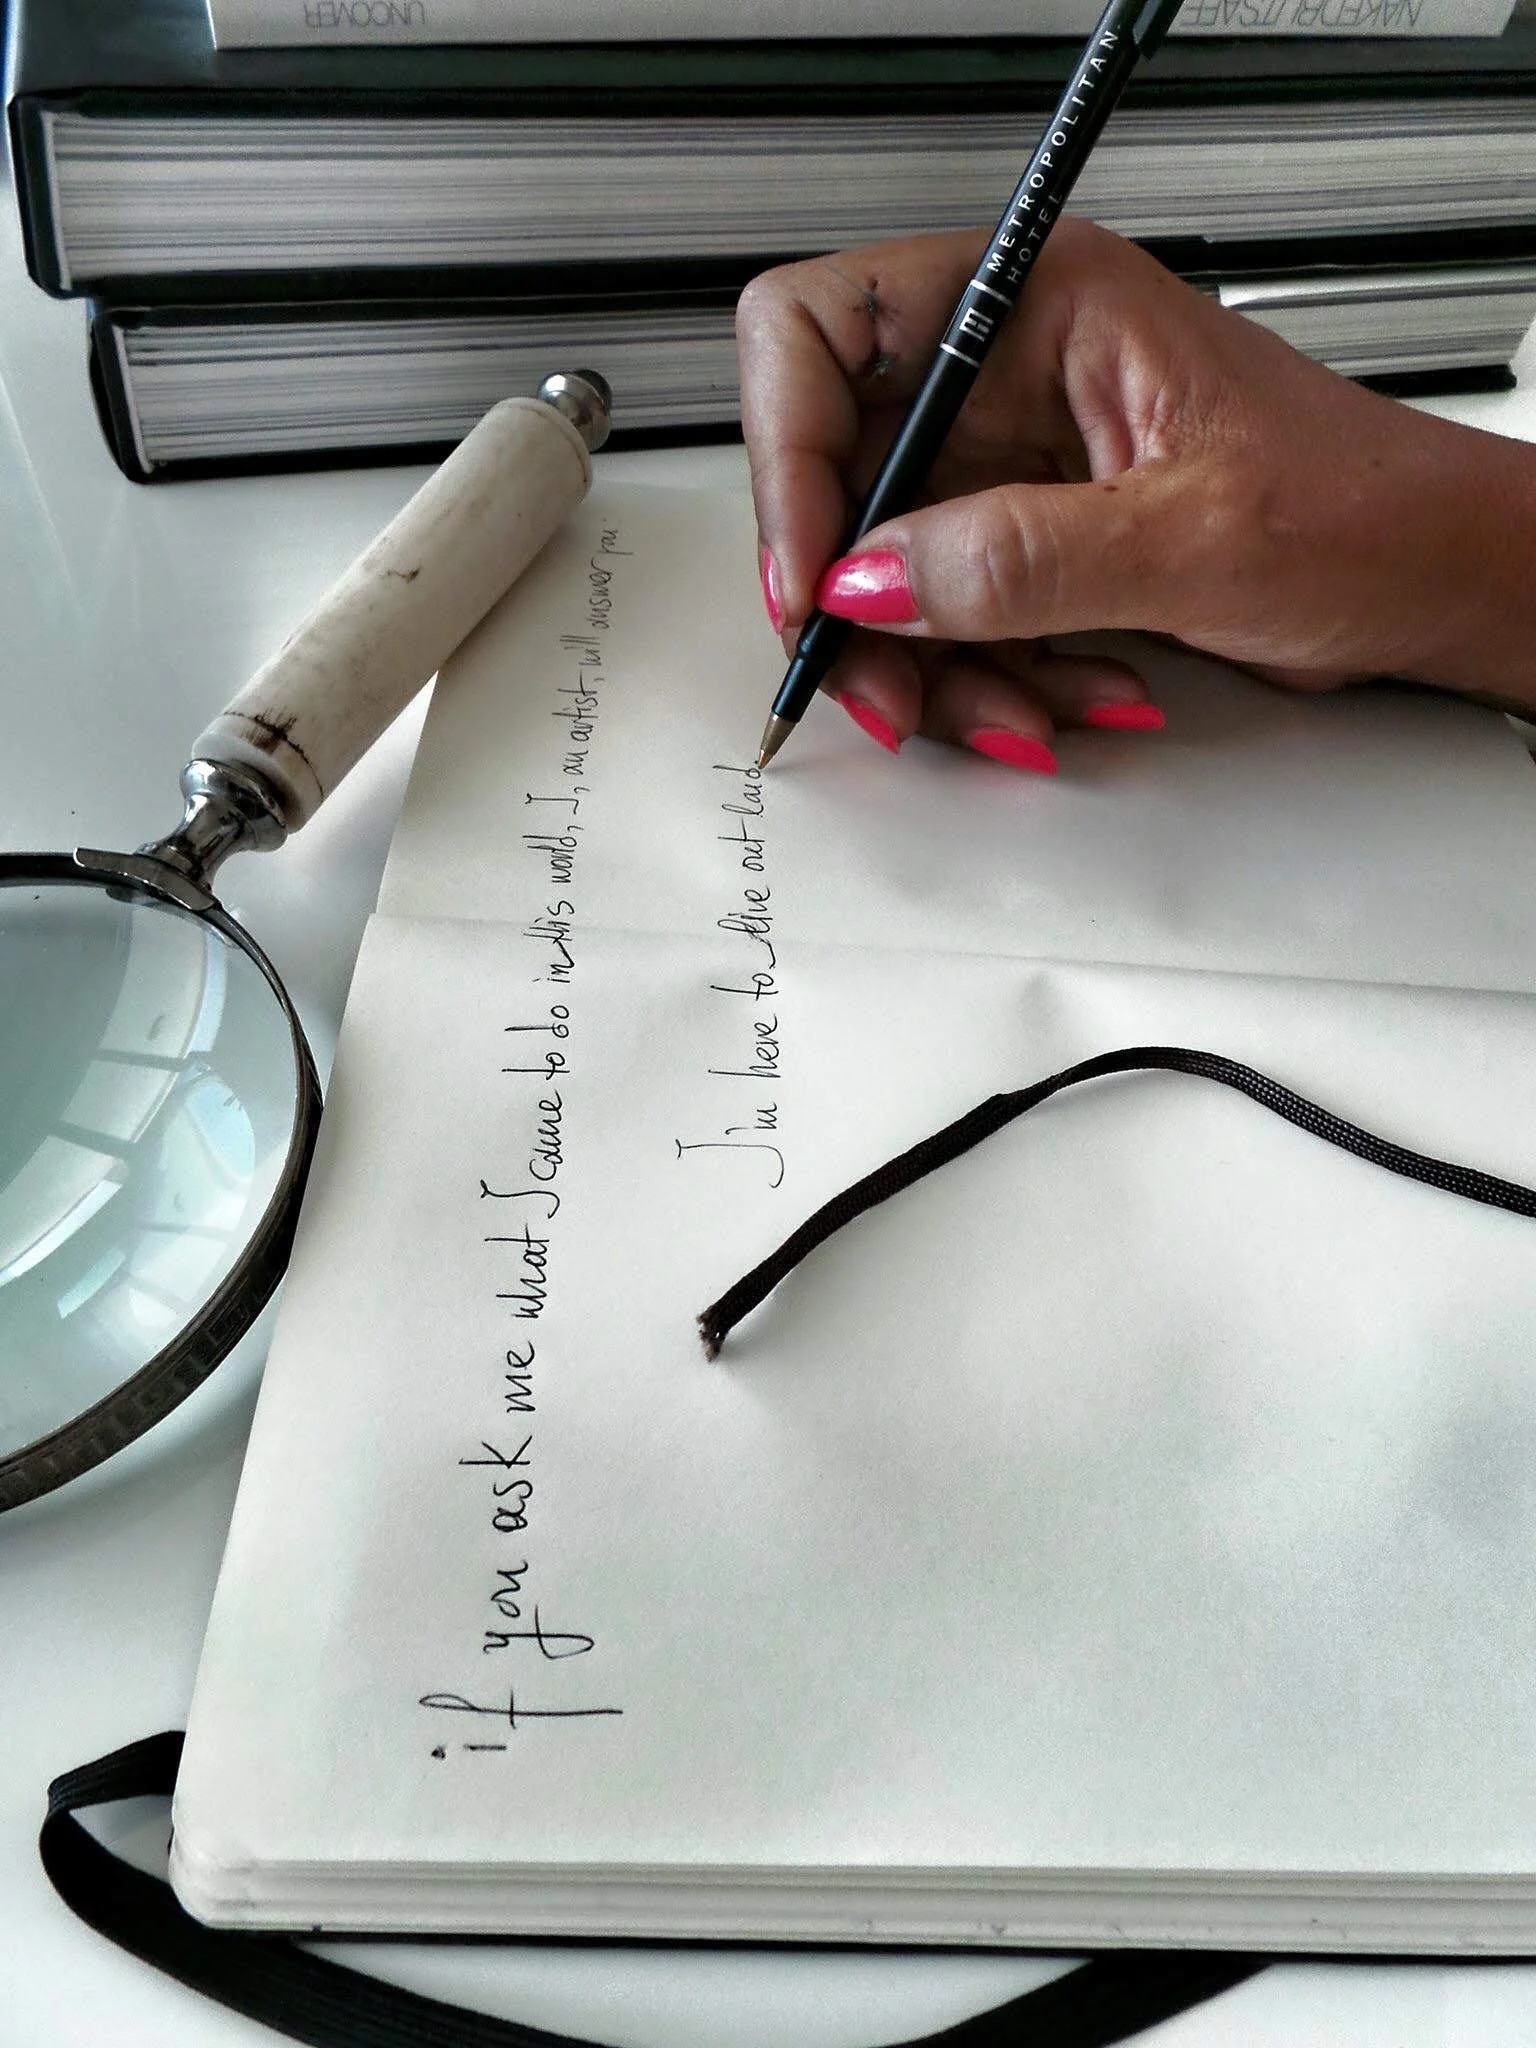 if you ask me what I came to do in this world, I, an artist, will answer you:
I'm here to live out loud.
METROPOLITAN
HOTEL
UNCOVER
NAKEDBUTSAFE